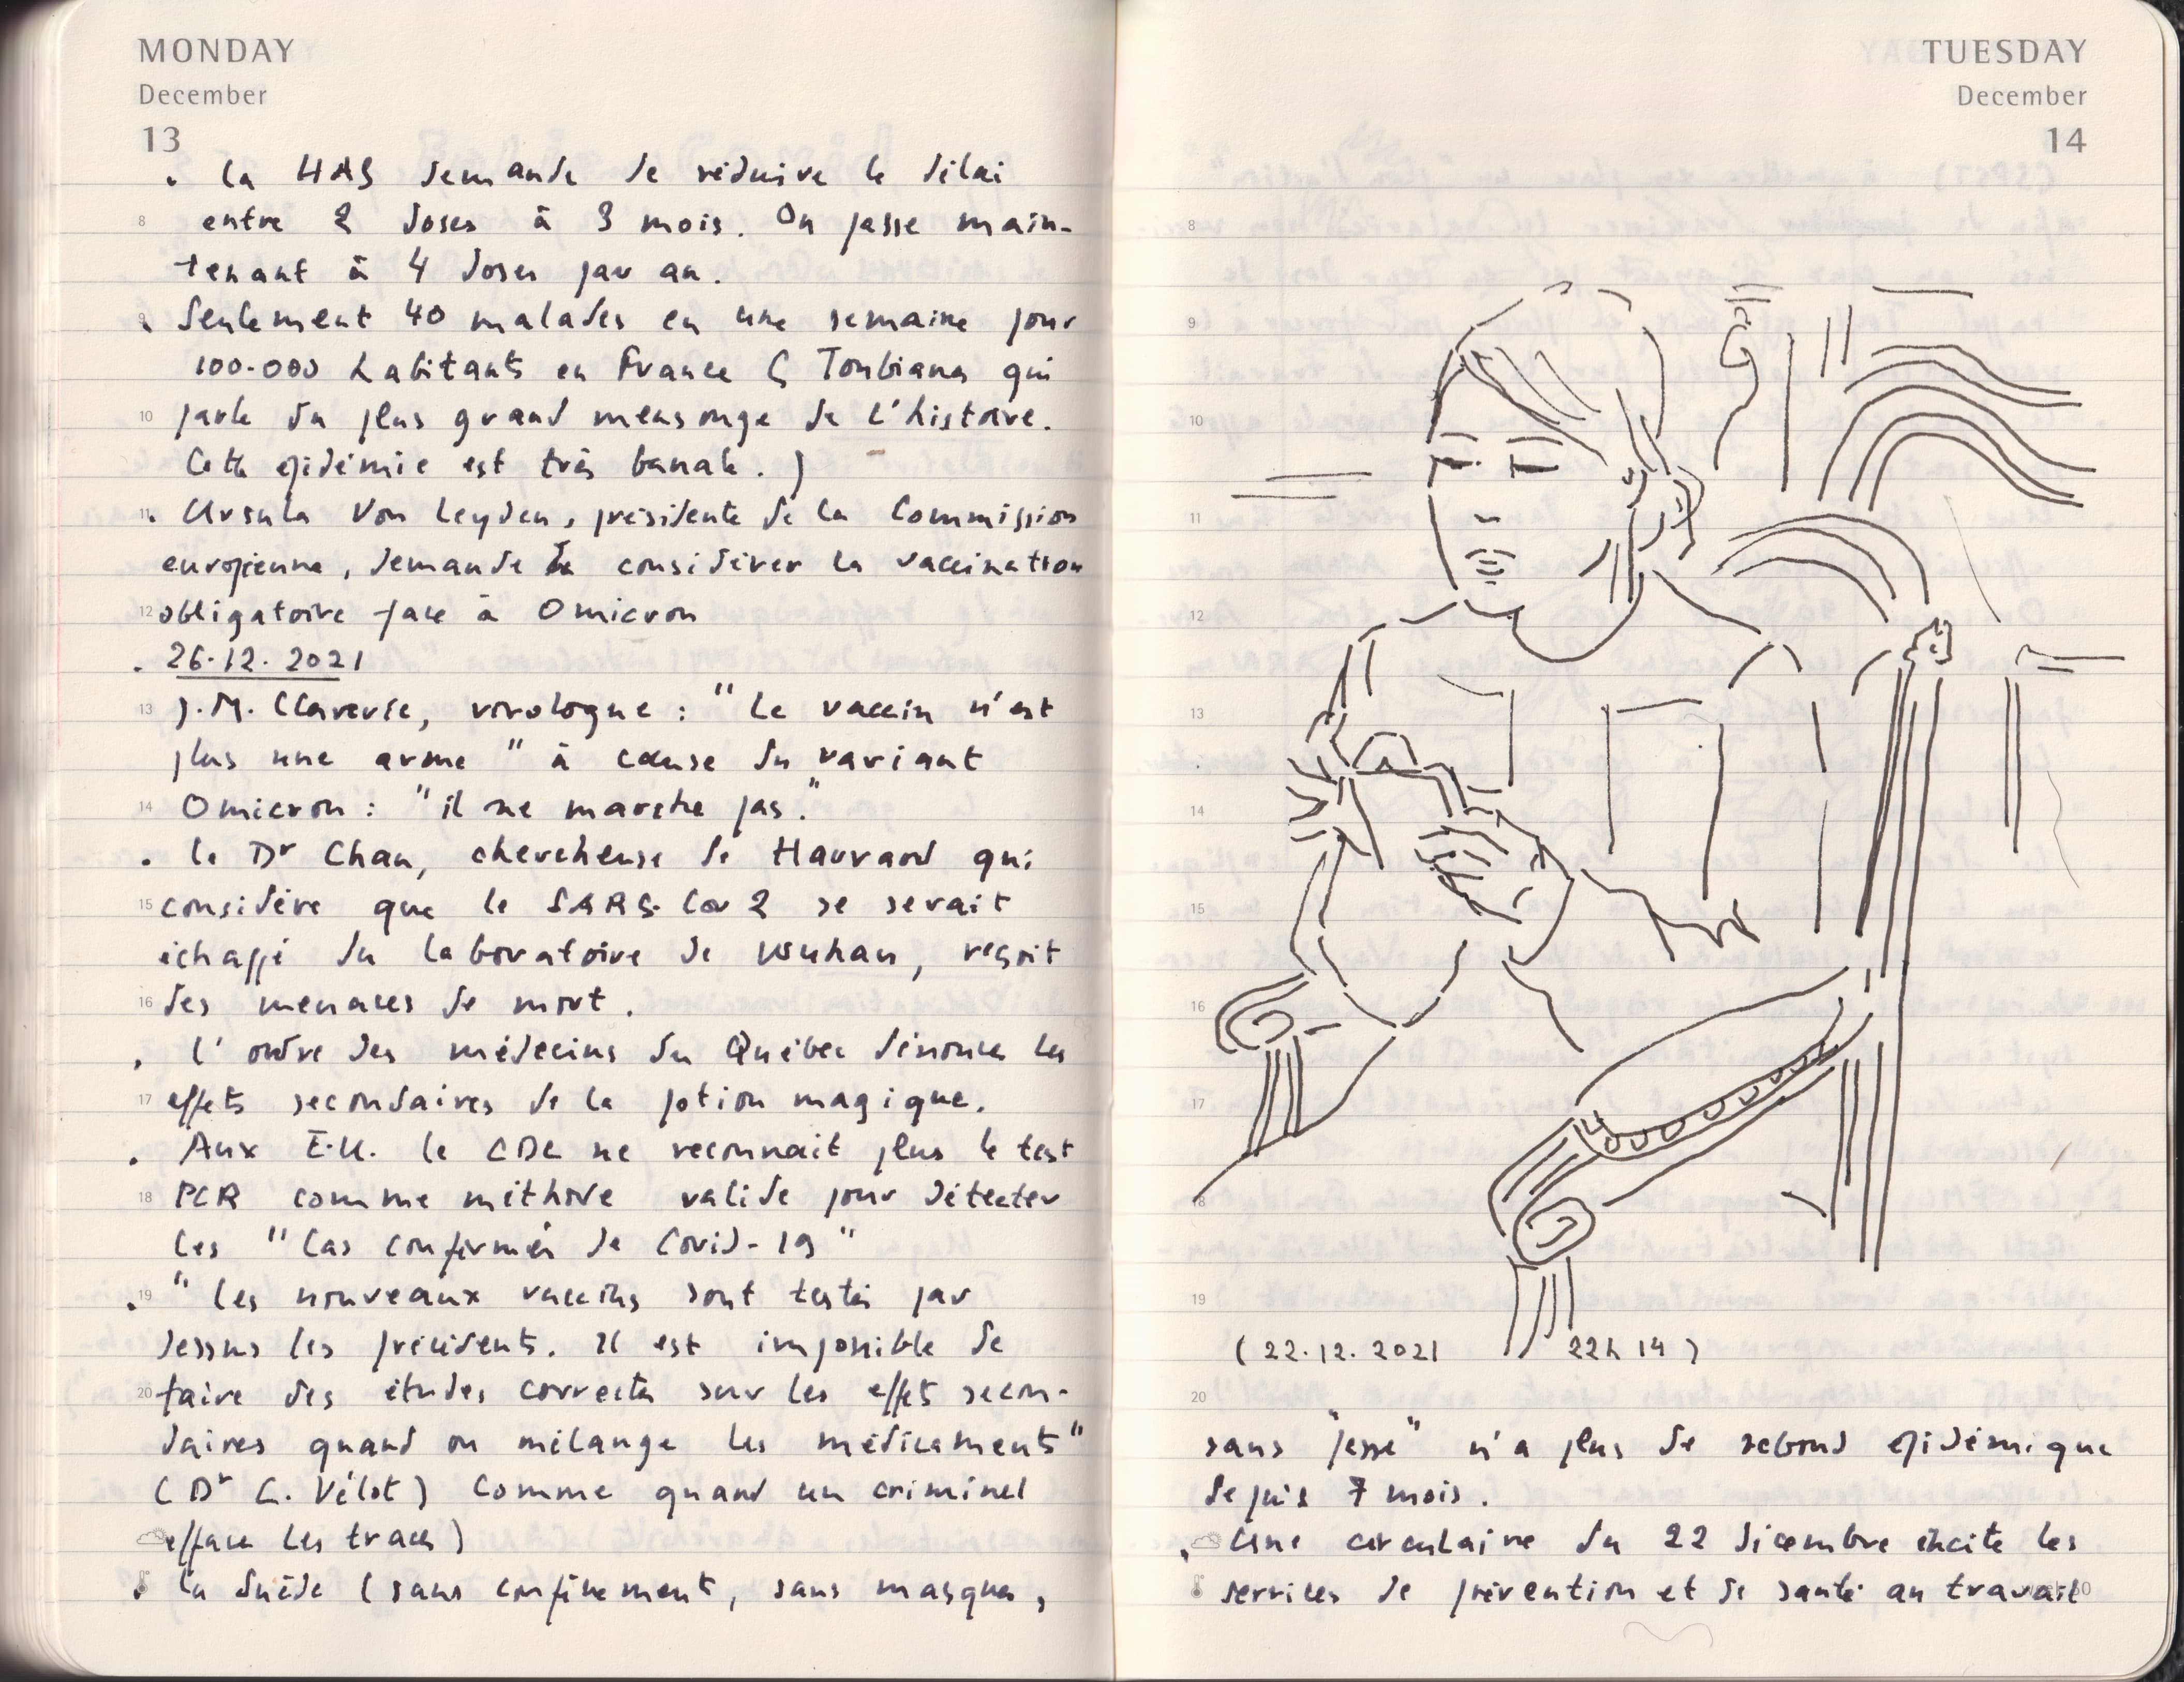 MONDAY
December
13
. La HAS demande de réduire le délai
8 entre 2 doses à 3 mois. On passe main-
tenant à 4 doses par an.
9 . Seulement 40 malades en une semaine pour
100.000 habitants en France (Toubiana qui
10 parle du plus grand mensonge de l'histoire.
Cette épidémie est très banale.)
11 . Ursula Von Leyden, présidente de la Commission
européenne, demande de considérer la vaccination
12 obligatoire face à Omicron
. 26.12.2021
13 J.M. Claverie, virologue : "Le vaccin n'est
plus une arme" à cause du variant
14 Omicron : "il ne marche pas."
. Le Dr Chan, chercheuse de Harvard qui
15 considère que le SARS-Cov 2 se serait
échappé du laboratoire de Wuhan, reçoit
16 des menaces de mort.
. L'ordre des médecins du Québec dénonce les
17 effets secondaires de la potion magique.
. Aux E.U. le CDC ne reconnait plus le test
18 PCR comme méthode valide pour détecter
les "Cas confirmés de Covid-19"
19 . "Les nouveaux vaccins sont testés par
dessus les précédents. Il est impossible de
20 faire des études correctes sur les effets secon-
daires quand on mélange les médicaments"
(Dr C. Vélot) Comme quand un criminel
efface les traces)
. La Suède (sans confinement, sans masques,
TUESDAY
December
14
8
9
10
11
12
13
14
15
16
17
18
19
(22.12.2021 22h14)
20
sans "passe" n'a plus de rebond épidémique
depuis 7 mois.
. Une circulaire du 22 décembre incite les
services de prévention et de santé au travail